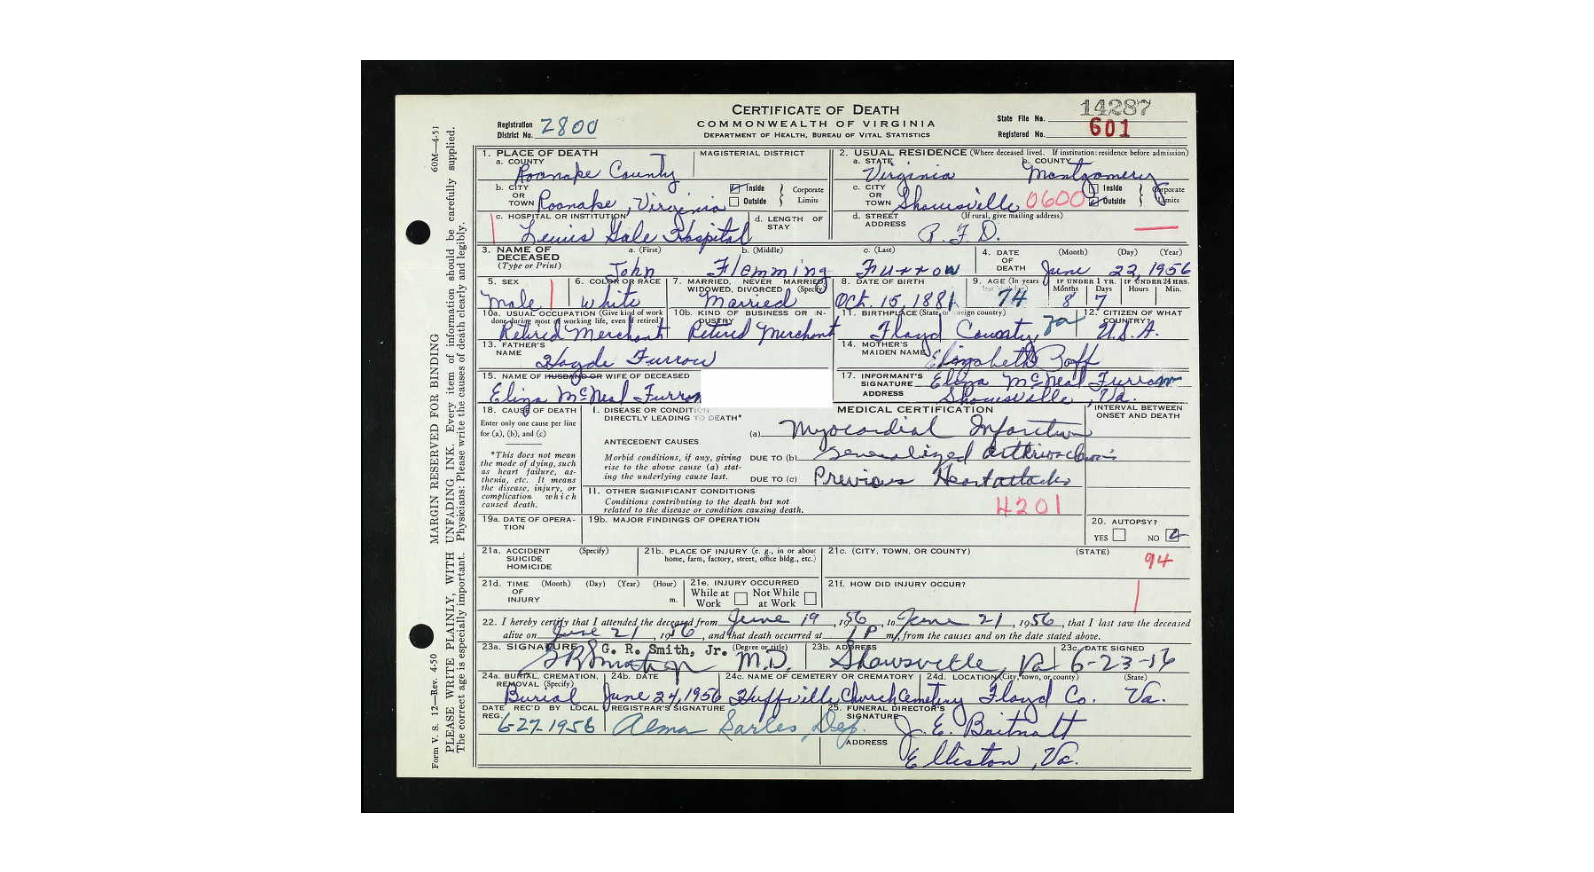 CERTIFICATE OF DEATH
COMMONWEALTH OF VIRGINIA
DEPARTMENT OF HEALTH, BUREAU OF VITAL STATISTICS
Registration District No. 2800
State File No. 14287
Registered No. 601
1. PLACE OF DEATH
a. COUNTY Roanoke County
MAGISTERIAL DISTRICT
b. CITY OR TOWN Roanoke, Virginia
Inside Outside Corporate Limits
c. HOSPITAL OR INSTITUTION Lewis Gale Hospital
d. LENGTH OF STAY
2. USUAL RESIDENCE (Where deceased lived. If institution: residence before admission)
a. STATE Virginia b. COUNTY Montgomery
c. CITY OR TOWN Shawsville 0600 Inside Outside Corporate Limits
d. STREET ADDRESS (If rural, give mailing address) R.F.D.
3. NAME OF DECEASED (Type or Print)
a. (First) John b. (Middle) Flemming c. (Last) Furrow
4. DATE OF DEATH (Month) (Day) (Year) June 22, 1956
5. SEX Male
6. COLOR OR RACE White
7. MARRIED, NEVER MARRIED, WIDOWED, DIVORCED (Specify) Married
8. DATE OF BIRTH Oct. 15, 1881
9. AGE (In years 74 IF UNDER 1 YR. Months 8 Days 7 IF UNDER 24 HRS. Hours Min.
10a. USUAL OCCUPATION (Give kind of work done during most of working life, even if retired) Retired Merchant
10b. KIND OF BUSINESS OR INDUSTRY Retired Merchant
11. BIRTHPLACE (State or foreign country) Floyd County, Va
12. CITIZEN OF WHAT COUNTRY? U.S.A.
13. FATHER'S NAME Furrow
14. MOTHER'S MAIDEN NAME Elizabeth
15. NAME OF HUSBAND OR WIFE OF DECEASED Eliza McNeal Furrow
17. INFORMANT'S SIGNATURE Eliza McNeal Furrow
ADDRESS Shawsville, Va.
18. CAUSE OF DEATH
Enter only one cause per line for (a), (b), and (c)
*This does not mean the mode of dying, such as heart failure, asthenia, etc. It means the disease, injury, or complication which caused death.
MEDICAL CERTIFICATION
INTERVAL BETWEEN ONSET AND DEATH
I. DISEASE OR CONDITION DIRECTLY LEADING TO DEATH*
(a) Myocardial Infarction
ANTECEDENT CAUSES
Morbid conditions, if any, giving rise to the above cause (a) stating the underlying cause last.
DUE TO (b) Generalized
DUE TO (c) Previous Heart attacks
II. OTHER SIGNIFICANT CONDITIONS
Conditions contributing to the death but not related to the disease or condition causing death.
4201
19a. DATE OF OPERATION
19b. MAJOR FINDINGS OF OPERATION
20. AUTOPSY?
YES NO
21a. ACCIDENT SUICIDE HOMICIDE (Specify)
21b. PLACE OF INJURY (e. g., in or about home, farm, factory, street, office bldg., etc.)
21c. (CITY, TOWN, OR COUNTY) (STATE)
94
21d. TIME OF INJURY (Month) (Day) (Year) (Hour) m.
21e. INJURY OCCURRED
While at Work Not While at Work
21f. HOW DID INJURY OCCUR?
22. I hereby certify that I attended the deceased from June 19, 1956, to June 21, 1956, that I last saw the deceased
alive on June 21, 1956, and that death occurred at 1 P m., from the causes and on the date stated above.
23a. SIGNATURE G. R. Smith, Jr. (Degree or title) M.D.
23b. ADDRESS Shawsville, Va
23c. DATE SIGNED 6-23-56
24a. BURIAL, CREMATION, REMOVAL (Specify) Burial
24b. DATE June 24, 1956
24c. NAME OF CEMETERY OR CREMATORY Huffville Church Cemetery
24d. LOCATION (City, town, or county) (State) Floyd Co. Va.
DATE REC'D BY LOCAL REG. 6-27-1956
REGISTRAR'S SIGNATURE Alma Sarles, Dep.
25. FUNERAL DIRECTOR'S SIGNATURE J. E.
ADDRESS Elliston, Va.
Form V. S. 12—Rev. 4-50 60M—4-51
MARGIN RESERVED FOR BINDING
PLEASE WRITE PLAINLY, WITH UNFADING INK. Every item of information should be carefully supplied.
The correct age is especially important. Physicians: Please write the causes of death clearly and legibly.